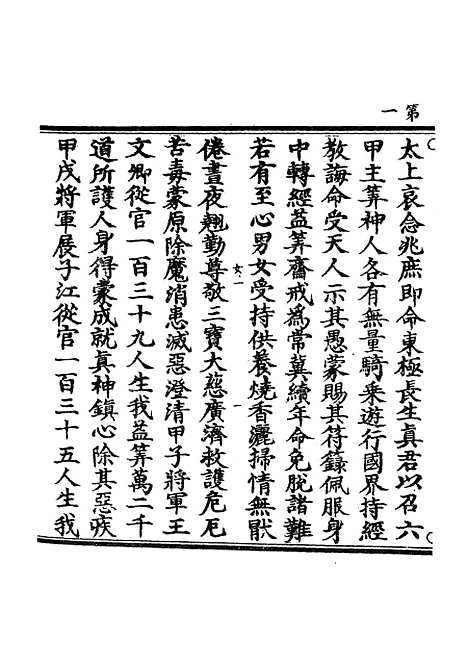 第一
太上哀念兆庶即命東極長生真君以召六
甲主筭神人各有無量騎乘遊行國界持經
教誨命受天人示其愚蒙賜其符籙佩服身
中轉經益筭齋戒為常冀續年命免脫諸難
若有至心男女受持供養燒香灑掃情無猒
女一
倦晝夜翹勤尊敬三寶大慈廣濟救護危厄
苦毒蒙原除魔消患滅惡澄清甲子將軍王
文卿從官一百三十九人生我益筭萬二千
道所護人身得蒙成就真神鎮心除其惡疾
甲戌將軍展子江從官一百三十五人生我